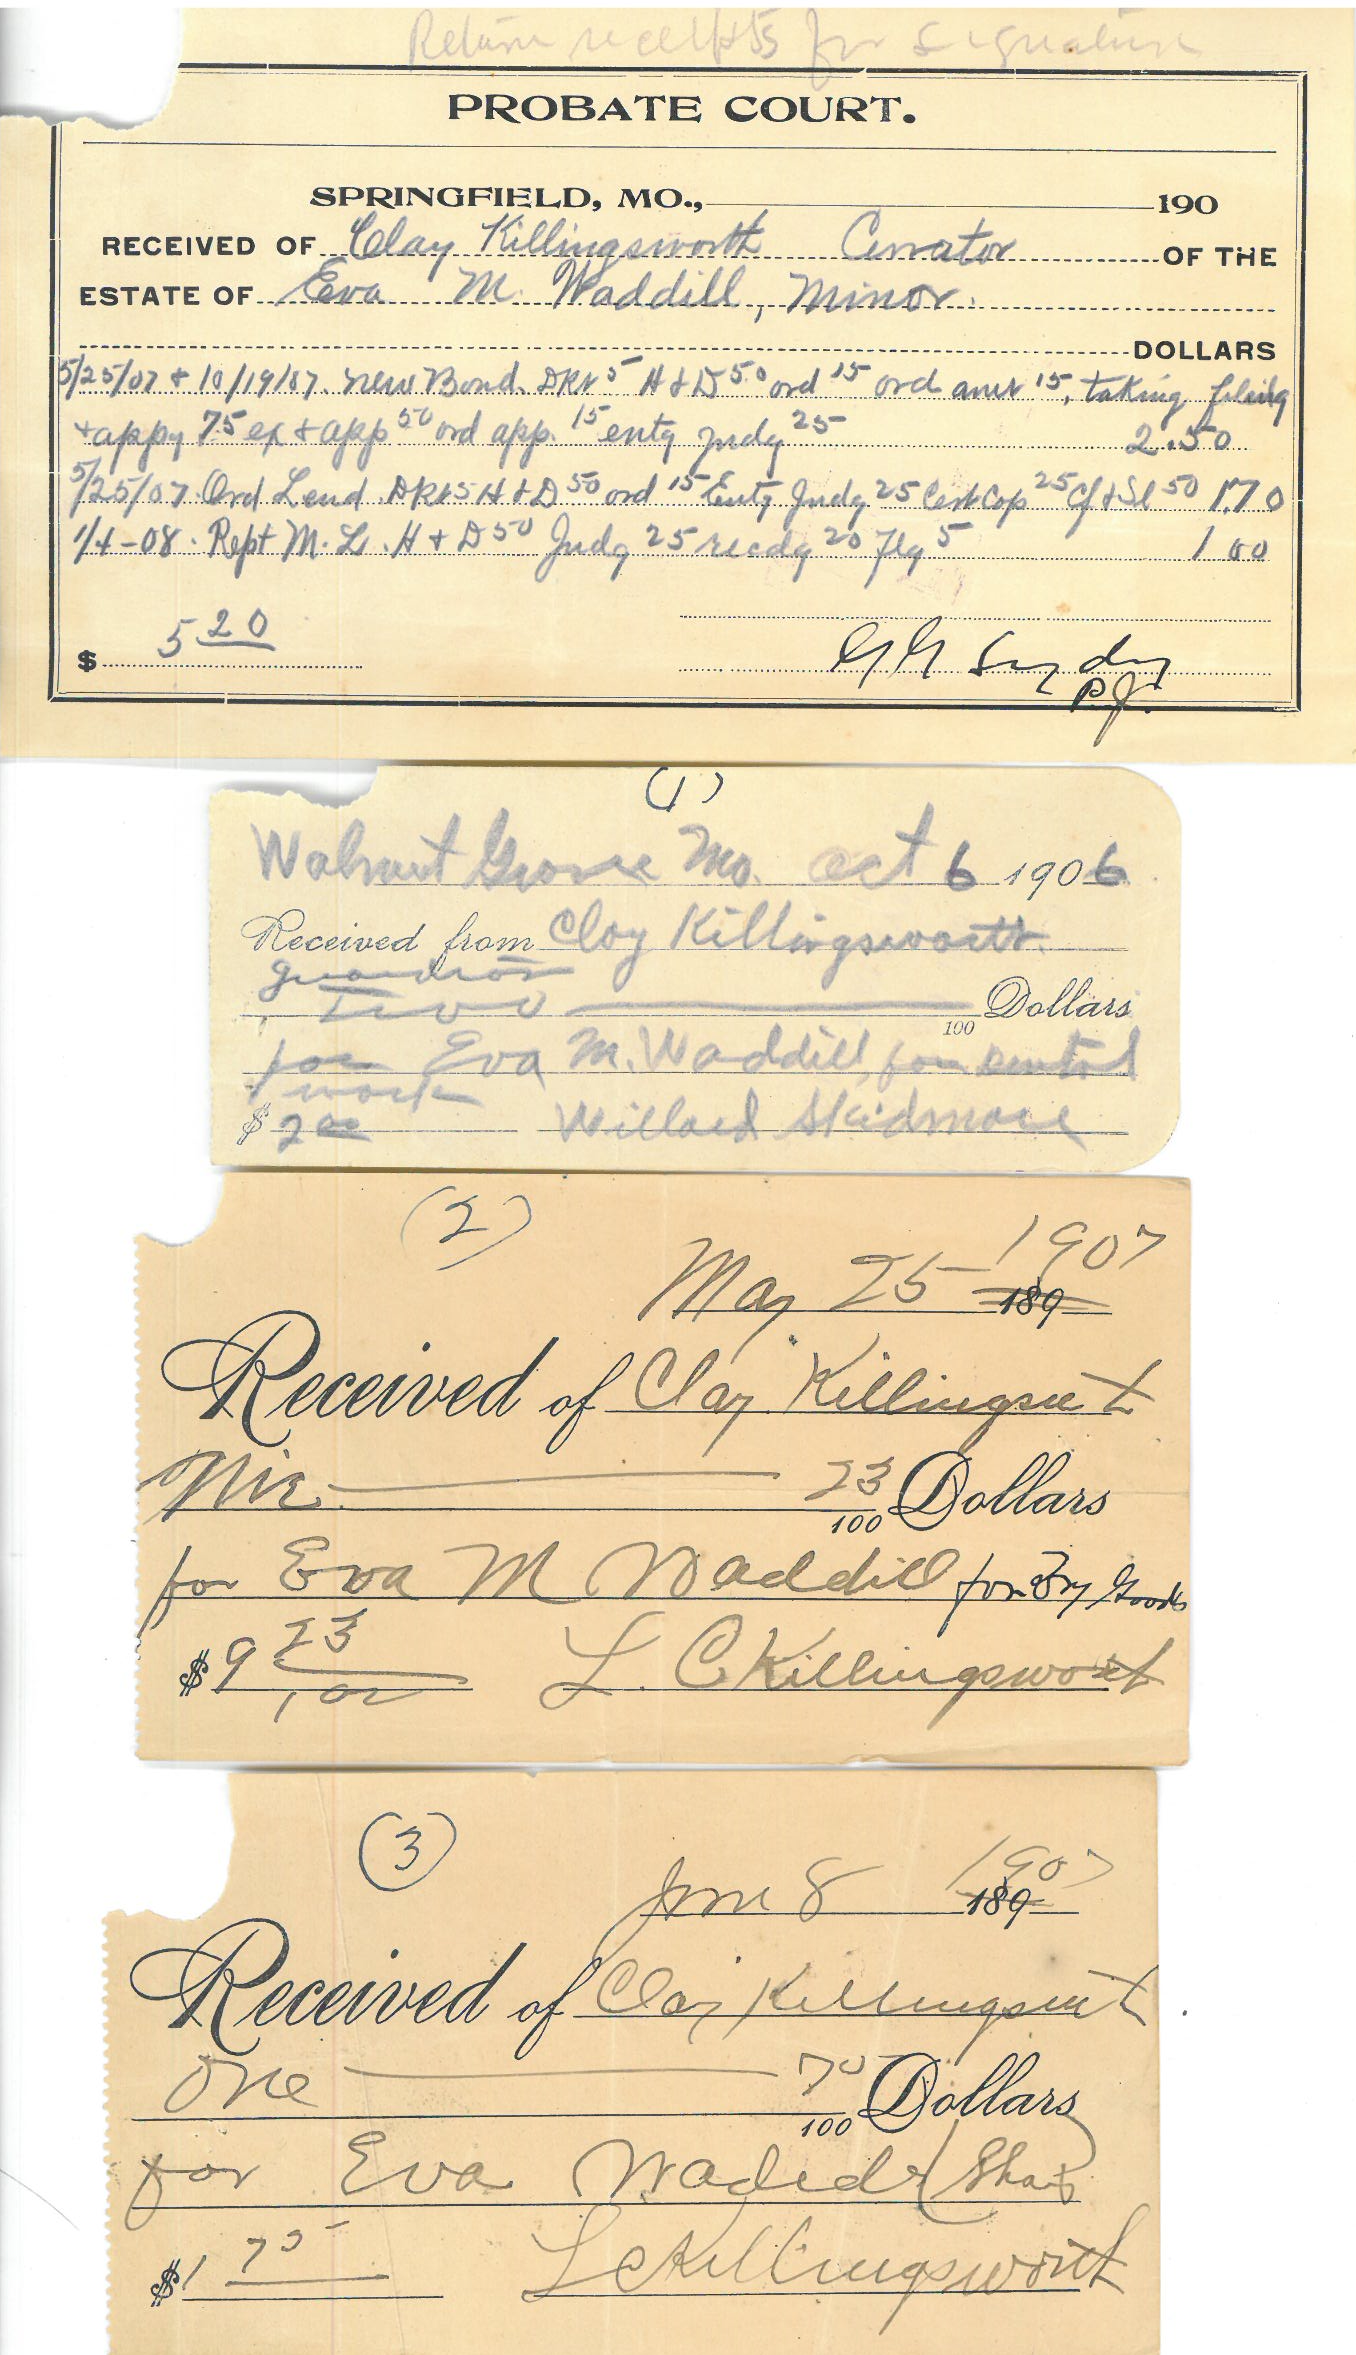 Return receipts for signature
PROBATE COURT.
SPRINGFIELD, MO., 190
RECEIVED OF Clay Killingsworth Curator OF THE
ESTATE OF Eva M. Waddill, Minor.
DOLLARS
5/25/07 + 10/19/07. New Bond. Dkt 5 H + D 50 ord 15 ord 15, taking filing
+ appg 75 ex + app 50 ord app. 15 entg Judg 25 2.50
5/25/07. Ord Lend. Dkt 5 H + D 50 ord 15 Entg Judg 25 Cert Cop 25 Cf + Sl 50 1.70
1/4-08. Rept M. L. H + D 50 Judg 25 recdg 20 Flg 5 1 00
$ 5 20
G G Snyder
P.J.
(1)
Walnut Grove Mo. Oct 6 1906
Received from Clay Killingsworth
guardian
Two 100 Dollars
for Eva M. Waddill, for dental
work
$ 2 00 Willard Skidmore
(2)
1907
May 25 189
Received of Clay Killingsworth
Nine 23/100 Dollars
for Eva M Waddill for Dry Goods
$ 9 23/100 L. C Killingsworth
(3)
1907
June 8 189
Received of Clay Killingsworth
One 75/100 Dollars
for Eva Waddill
$ 1 75 L C Killingsworth